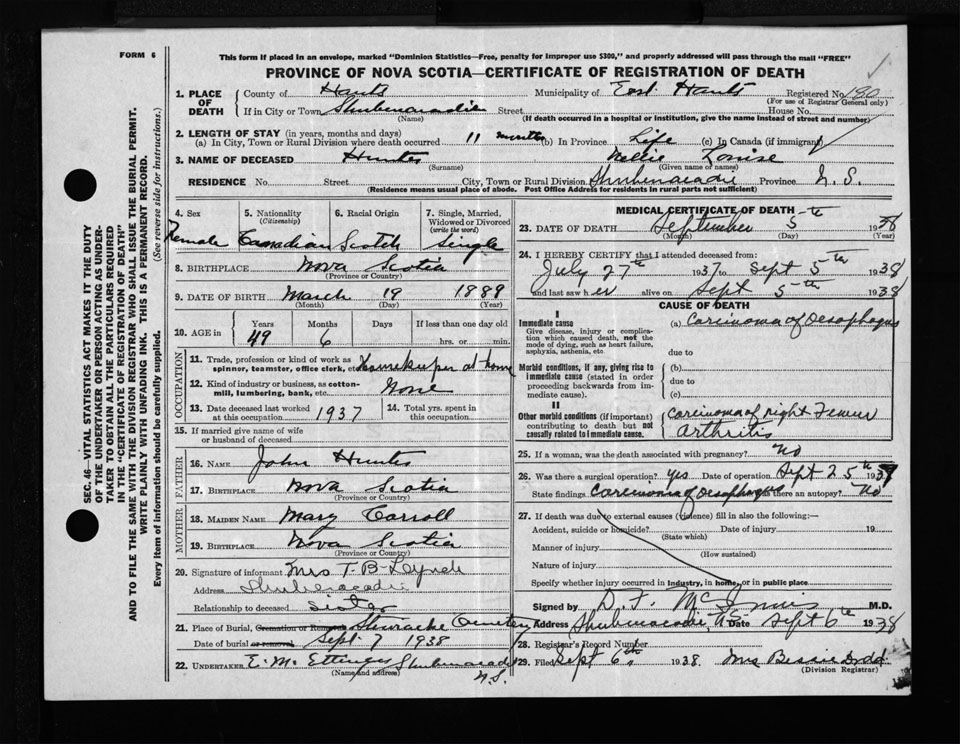 FORM 6
This form if placed in an envelope, marked "Dominion Statistics—Free, penalty for improper use $300," and properly addressed will pass through the mail "FREE"
PROVINCE OF NOVA SCOTIA—CERTIFICATE OF REGISTRATION OF DEATH
SEC. 46—VITAL STATISTICS ACT MAKES IT THE DUTY
OF THE UNDERTAKER OR PERSON ACTING AS UNDER-
TAKER TO OBTAIN ALL THE PARTICULARS REQUIRED
IN THE "CERTIFICATE OF REGISTRATION OF DEATH"
AND TO FILE THE SAME WITH THE DIVISION REGISTRAR WHO SHALL ISSUE THE BURIAL PERMIT.
WRITE PLAINLY WITH UNFADING INK. THIS IS A PERMANENT RECORD.
Every item of information should be carefully supplied. (See reverse side for instructions.)
1. PLACE OF DEATH
County of Hants Municipality of East Hants Registered No. 190
(For use of Registrar General only)
If in City or Town Shubenacadie Street House No.
(Name) (If death occurred in a hospital or institution, give the name instead of street and number)
2. LENGTH OF STAY (in years, months and days)
(a) In City, Town or Rural Division where death occurred 11 months (b) In Province Life (c) In Canada (if immigrant)
3. NAME OF DECEASED Hunter Nellie Louise
(Surname) (Given name or names)
RESIDENCE No. Street City, Town or Rural Division Shubenacadie Province N.S.
(Residence means usual place of abode. Post Office Address for residents in rural parts not sufficient)
4. Sex Female
5. Nationality (Citizenship) Canadian
6. Racial Origin Scotch
7. Single, Married, Widowed or Divorced (write the word) Single
8. BIRTHPLACE Nova Scotia
(Province or Country)
9. DATE OF BIRTH March 19 1889
(Month) (Day) (Year)
10. AGE in Years Months Days If less than one day old
49 6 hrs. or min.
OCCUPATION
11. Trade, profession or kind of work as spinner, teamster, office clerk, etc. Housekeeper at home
12. Kind of industry or business, as cotton-mill, lumbering, bank, etc. None
13. Date deceased last worked at this occupation 1937
14. Total yrs. spent in this occupation
15. If married give name of wife or husband of deceased
FATHER
16. NAME John Hunter
17. BIRTHPLACE Nova Scotia
(Province or Country)
MOTHER
18. MAIDEN NAME Mary Carroll
19. BIRTHPLACE Nova Scotia
(Province or Country)
20. Signature of informant Mrs T. B. Lynch
Address Shubenacadie
Relationship to deceased sister
21. Place of Burial, Cremation or Removal Cemetery
Date of burial or removal Sept. 7 1938
22. UNDERTAKER E. Mc Ettinger Shubenacadie
(Name and address) N.S.
MEDICAL CERTIFICATE OF DEATH
23. DATE OF DEATH September 5th 1938
(Month) (Day) (Year)
24. I HEREBY CERTIFY that I attended deceased from:
July 27th 1937 to Sept 5th 1938
and last saw her alive on Sept 5th 1938
CAUSE OF DEATH
I
Immediate cause
Give disease, injury or complication which caused death, not the mode of dying, such as heart failure, asphyxia, asthenia, etc.
(a) Carcinoma of Oesophagus
due to
Morbid conditions, if any, giving rise to immediate cause (stated in order proceeding backwards from immediate cause).
(b)
due to
(c)
II
Other morbid conditions (if important) contributing to death but not causally related to immediate cause.
Carcinoma of right Femur
Arthritis
25. If a woman, was the death associated with pregnancy? No
26. Was there a surgical operation? yes Date of operation Sept 25th 1937
State findings Carcinoma of Oesophagus Was there an autopsy? No
27. If death was due to external causes (violence) fill in also the following:—
Accident, suicide or homicide? Date of injury 19
(State which)
Manner of injury
(How sustained)
Nature of injury
Specify whether injury occurred in industry, in home, or in public place
Signed by D. F. McInnis M.D.
Address Shubenacadie, N.S. Date Sept 6th 1938
28. Registrar's Record Number
29. Filed Sept 6th 1938. Mrs Bessie Dodd
(Division Registrar)